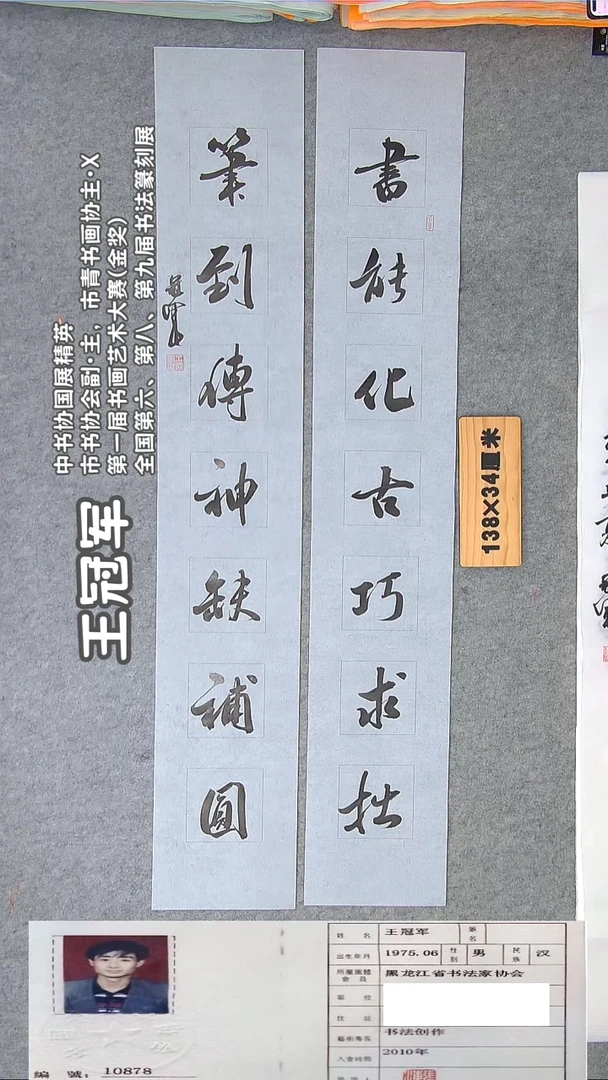 書能化古巧求拙
筆到傳神缺補圓
冠軍
138×34厘米
王冠军
中书协国展精英
市书协会副·主，市青书画协主·X
第一届书画艺术大赛(金奖)
全国第六、第八、第九届书法篆刻展
编 號：10878
姓 名 王冠军 筆名
出生年月 1975.06 性别 男 民族 汉
所屬團體會員 黑龙江省书法家协会
單 位
住 址
藝術專長 书法创作
入會時間 2010年